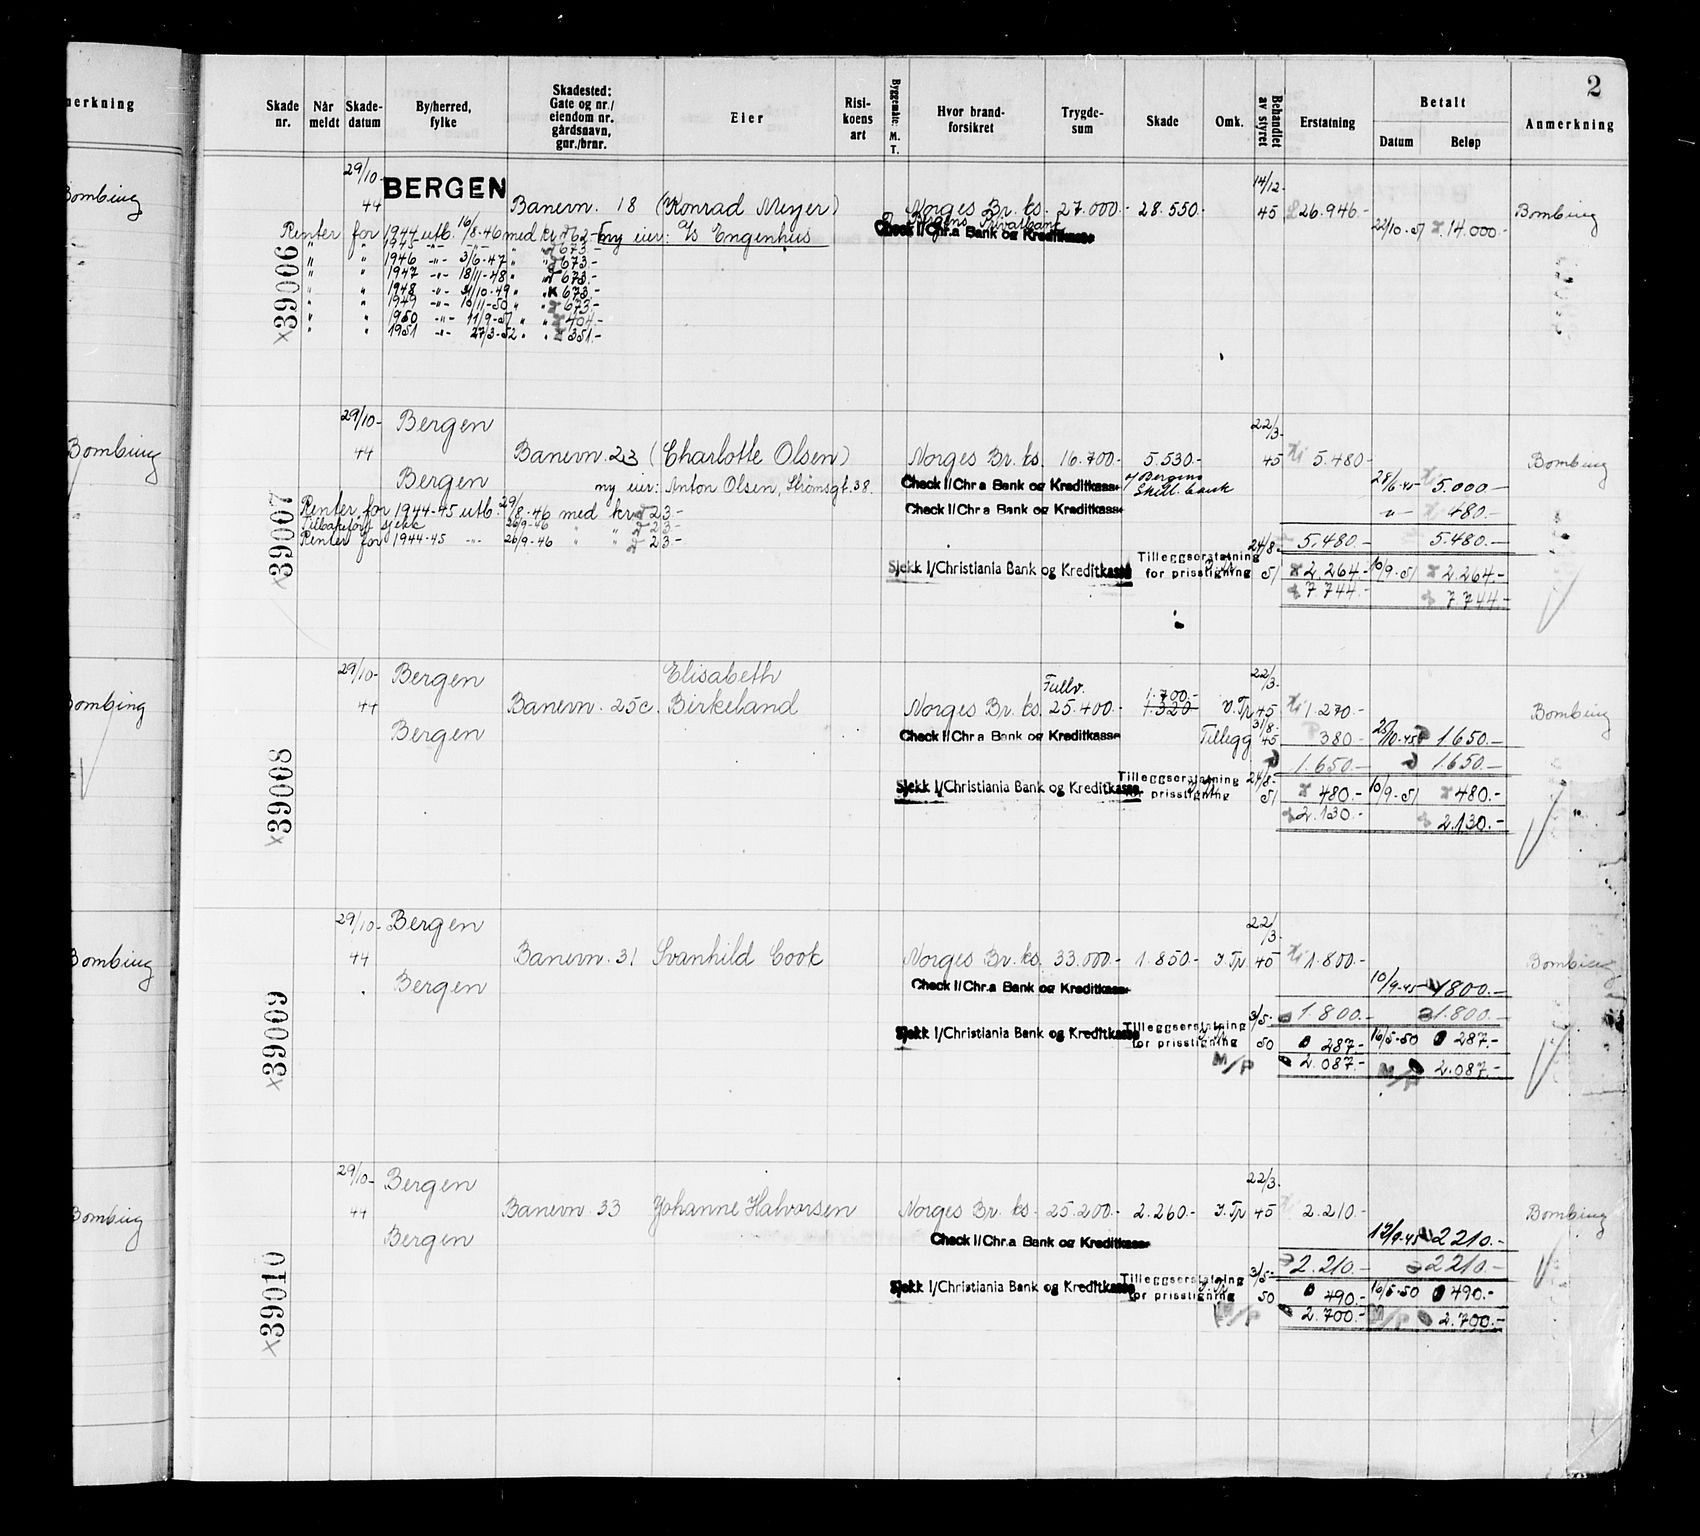 2
nerkning
Skade nr.
Når meldt
Skade-datum
By/herred, fylke
Skadested: Gate og nr./ eiendom nr. gårdsnavn, gnr./brnr.
Eier
Risi-koens art
Byggemåte: M. T.
Hvor brand-forsikret
Trygde-sum
Skade
Omk.
Behandlet av styret
Erstatning
Betalt
Datum
Beløp
Anmerkning
Bombing
Bombing
Bombing
Bombing
Bombing
x39006
29/10-44 BERGEN Banevn. 18 (Konrad Meyer) Norges Br. ks. 27.000.- 28.550.- 14/12-45 26.946.- Bombing
Bergens Privatbank
Check I/Chr.a Bank og Kreditkasse 22/10-51 14.000.-
Renter for 1944 utb. 16/8-46 med kr. 62.- ny eier: A/S Engenhus
" " 1945 -"- -"- 673.-
" " 1946 -"- 3/6-47 " " 673.-
" " 1947 -"- 18/11-48 " " 673.-
" " 1948 -"- 31/10-49 " " 673.-
" " 1949 -"- 10/11-50 " " 673.-
" " 1950 -"- 11/9-51 " " 404.-
" " 1951 -"- 27/3-52 " " 351.-
x39007
29/10-44 Bergen Banevn. 23 (Charlotte Olsen) Norges Br. ks. 16.700.- 5.530.- 22/3-45 5.480.- Bombing
Bergen ny eier: Anton Olsen, Strömsgt. 38. Check I/Chr.a Bank og Kreditkasse v/ Bergens Skill. bank 28/6-45 5.000.-
Renter for 1944-45 utb. 29/8-46 med kr. 23.- Check I/Chr.a Bank og Kreditkasse -"- 480.-
Tilbakeført sjekk 26/9-46 23.-
Renter for 1944-45 -"- 26/9-46 " " 23.- 5.480.- 5.480.-
Sjekk I/Christiania Bank og Kreditkasse Tilleggserstatning for prisstigning 24/8-51 2.264.- 10/9-51 2.264.-
7.744.- 7.744.-
x39008
29/10-44 Bergen Banevn. 25c Elisabeth Birkeland Norges Br. ks. Fullv. 25.400.- 1.700.- 1.320 V.Tp 22/3-45 1.270.- Bombing
Bergen Check I/Chr.a Bank og Kreditkasse Tillegg 31/8-45 380.- 1650.-
1.650.- 1.650.-
Sjekk I/Christiania Bank og Kreditkasse Tilleggserstatning for prisstigning 24/8-51 480.- 10/9-51 480.-
2.130.- 2.130.-
x39009
29/10-44 Bergen Banevn. 31 Svanhild Cook Norges Br. ks. 33.000.- 1.850.- J.Tp 22/3-45 1.800.- Bombing
Bergen Check I/Chr.a Bank og Kreditkasse 10/9-45 1800.-
1.800.- 1.800.-
Sjekk I/Christiania Bank og Kreditkasse Tilleggserstatning for prisstigning 3/5-50 287.- 16/5-50 287.-
M/P 2.087.- M/P 2.087.-
x39010
29/10-44 Bergen Banevn. 33 Johanne Halvorsen Norges Br. ks. 25.200.- 2.260.- J.Tp 22/3-45 2.210.- Bombing
Bergen Check I/Chr.a Bank og Kreditkasse 12/9-45 2210.-
2.210.- 2210.-
Sjekk I/Christiania Bank og Kreditkasse Tilleggserstatning for prisstigning 3/5-50 490.- 16/5-50 490.-
M/P 2.700.- M/P 2.700.-